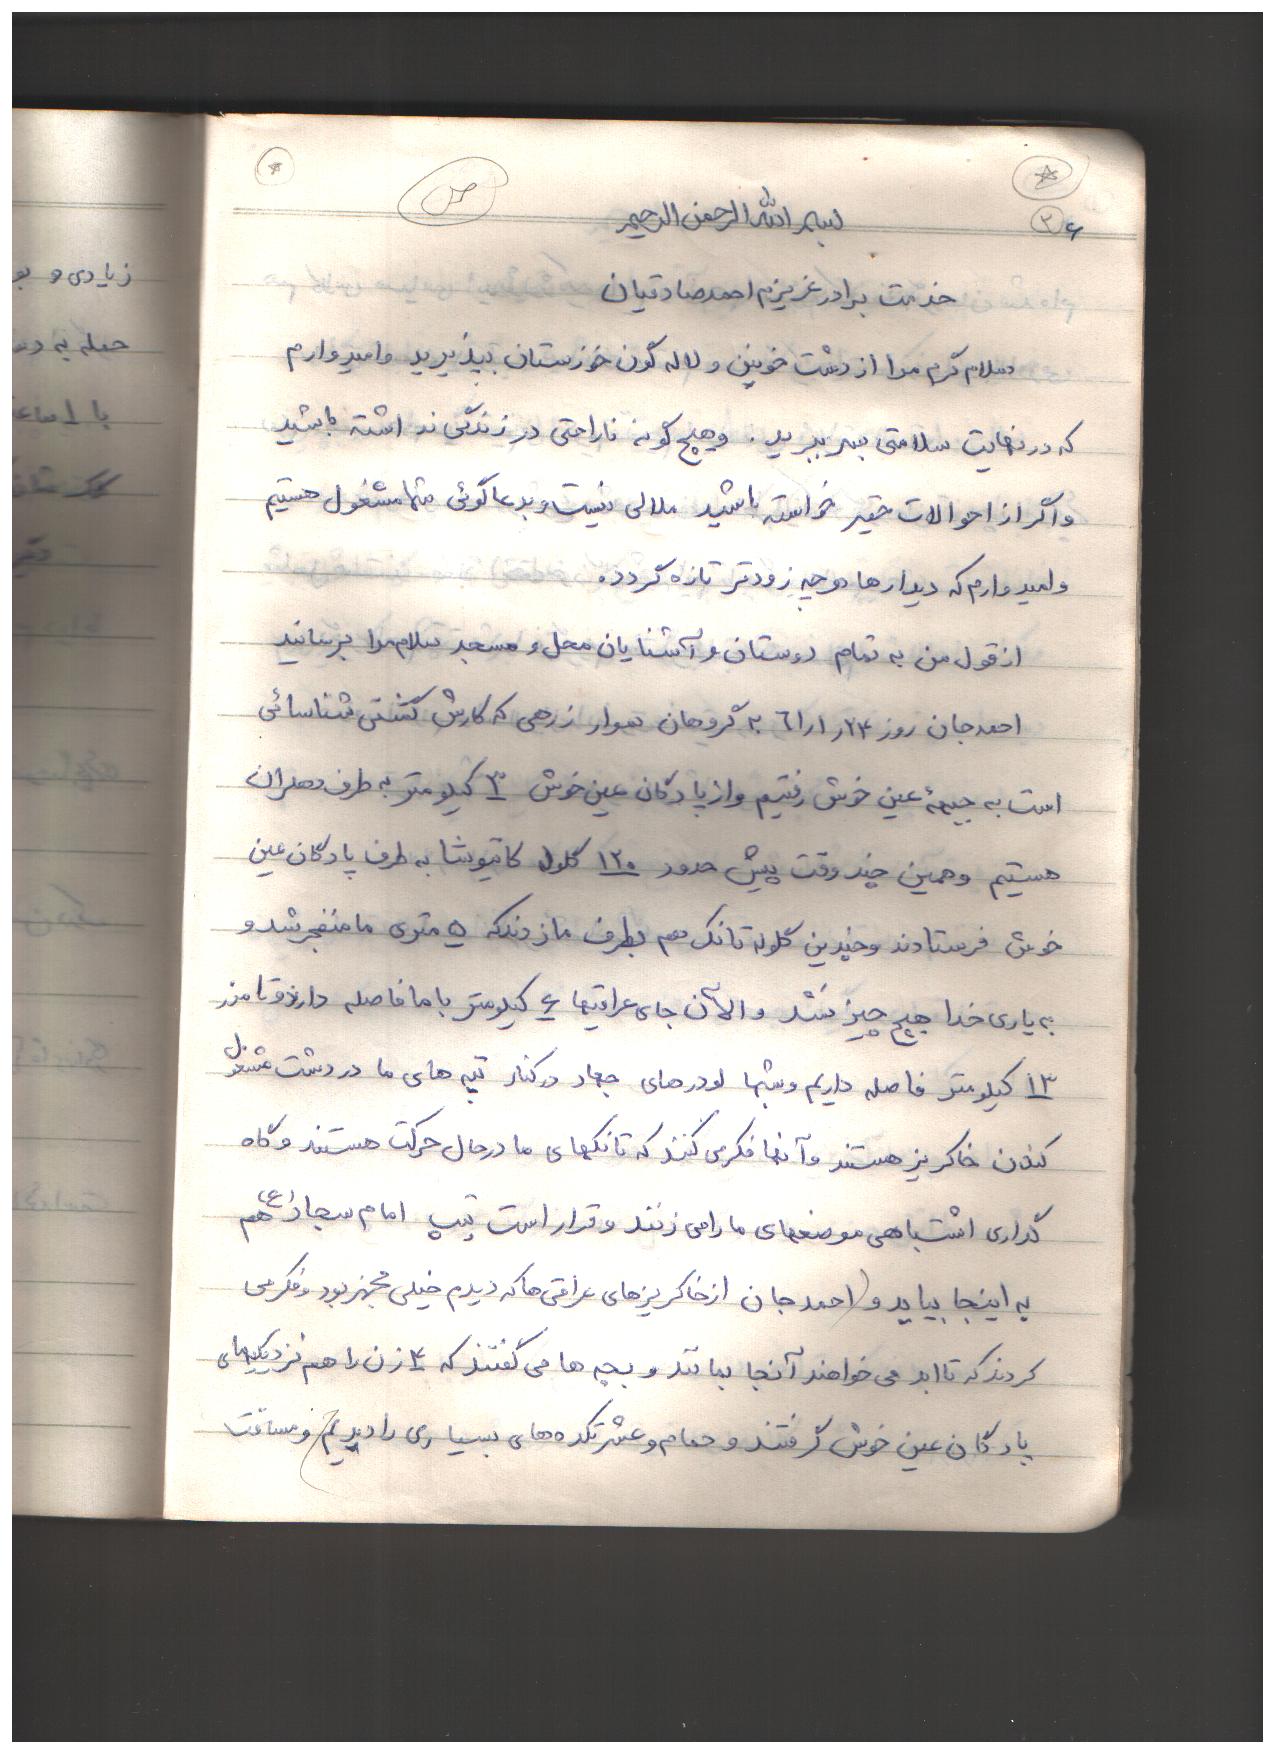 بسم الله الرحمن الرحیم
خدمت برادر عزیزم احمد صادقیان
سلام گرم مرا از دشت خونین و لاله گون خوزستان بپذیرید و امیدوارم
که در نهایت سلامتی بسر ببرید. و هیچ گونه ناراحتی در زندگی نداشته باشید
و اگر از احوالات حقیر خواسته باشید ملالی نیست و بدعاگوئی شما مشغول هستیم
و امیدوارم که دیدارها هر چه زودتر تازه گردد.
از قول من به تمام دوستان و آشنایان محل و مسجد سلام مرا برسانید
احمد جان روز ۲۴ر۱ر۶۱ به گروهان سوار زرهی که کارش گشتی شناسائی
است به جبههٔ عین خوش رفتیم و از پادگان عین خوش ۳ کیلومتر به طرف دهلران
هستیم و همین چند وقت پیش حدود ۱۲۰ گلوله کاتیوشا به طرف پادگان عین
خوش فرستادند و چندین گلوله تانک هم بطرف ما زدند که ۵ متری ما منفجر شد و
به یاری خدا هیچ چیز نشد و الآن جای عراقیها ۶ کیلومتر با ما فاصله دارند و تا مرز
۱۳ کیلومتر فاصله داریم و شبها لودرهای جهاد در کنار تپه های ما در دشت مشغول
کندن خاکریز هستند و آنها فکر می کنند که تانکهای ما در حال حرکت هستند و گاه
گداری اشتباهی موضعهای ما را می زنند و قرار است تیپ امام سجاد (ع) هم
به اینجا بیاید و (احمد جان از خاکریزهای عراقی ها که دیدم خیلی مجهز بود و فکر می
کردند که تا ابد می خواهند آنجا بمانند و بچه ها می گفتند که ۴ زن را هم نزدیکیهای
پادگان عین خوش گرفتند و حمام و عشرتکده های بسیاری را دیدیم) و مسافت